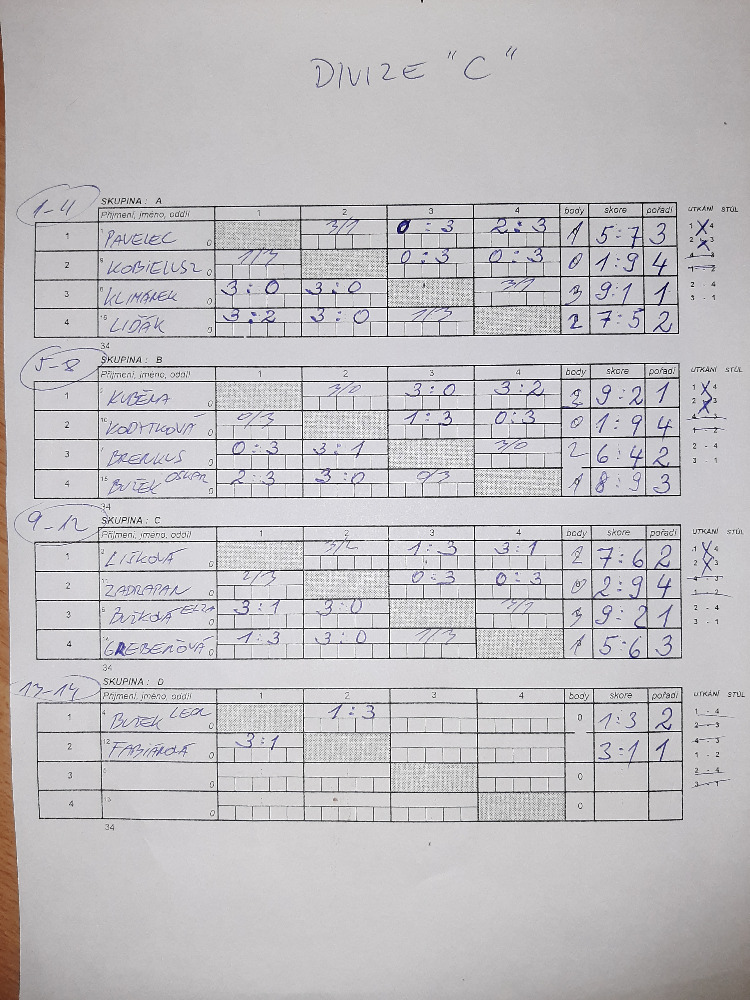 DIVIZE "C"
1-4 SKUPINA : A
Příjmení, jméno, oddíl 1 2 3 4 body skore pořadí UTKÁNÍ STŮL
1 PAVELEC 0 3/1 0 : 3 2 : 3 1 5:7 3
2 KOBIELUSZ 0 1/3 0 : 3 0 : 3 0 1:9 4
3 KLIMÁREK 3 : 0 3 : 0 3/1 3 9:1 1 2 - 4
4 LIĎÁK 3 : 2 3 : 0 1/3 2 7:5 2 3 - 1
34
5-8 SKUPINA : B
Příjmení, jméno, oddíl 1 2 3 4 body skore pořadí UTKÁNÍ STŮL
1 KUBĚNA 3/0 3 : 0 3 : 2 3 9:2 1
2 KODYTKOVÁ 0 0/3 1 : 3 0 : 3 0 1:9 4
3 BRENKUS 0 0 : 3 3 : 1 3/0 2 6:4 2 2 - 4
4 BUTEK OSKAR 0 2 : 3 3 : 0 0/3 1 8:9 3 3 - 1
34
9-12 SKUPINA : C
Příjmení, jméno, oddíl 1 2 3 4 body skore pořadí UTKÁNÍ STŮL
1 LIŠKOVÁ 3/2 1 : 3 3 : 1 2 7:6 2
2 ZADRAPAN 2/3 0 : 3 0 : 3 0 2:9 4
3 ELZA 3 : 1 3 : 0 3/1 3 9:2 1 2 - 4
4 GREBEŇOVÁ 0 1 : 3 3 : 0 1/3 1 5:6 3 3 - 1
34
13-14 SKUPINA : D
Příjmení, jméno, oddíl 1 2 3 4 body skore pořadí UTKÁNÍ STŮL
1 BUTEK LEOL 1 : 3 0 1:3 2 1 - 4
2 FABIÁNOVÁ 0 3:1 3:1 1 1 - 2
3 0 0 2 - 4
4 0 0 3 - 1
34